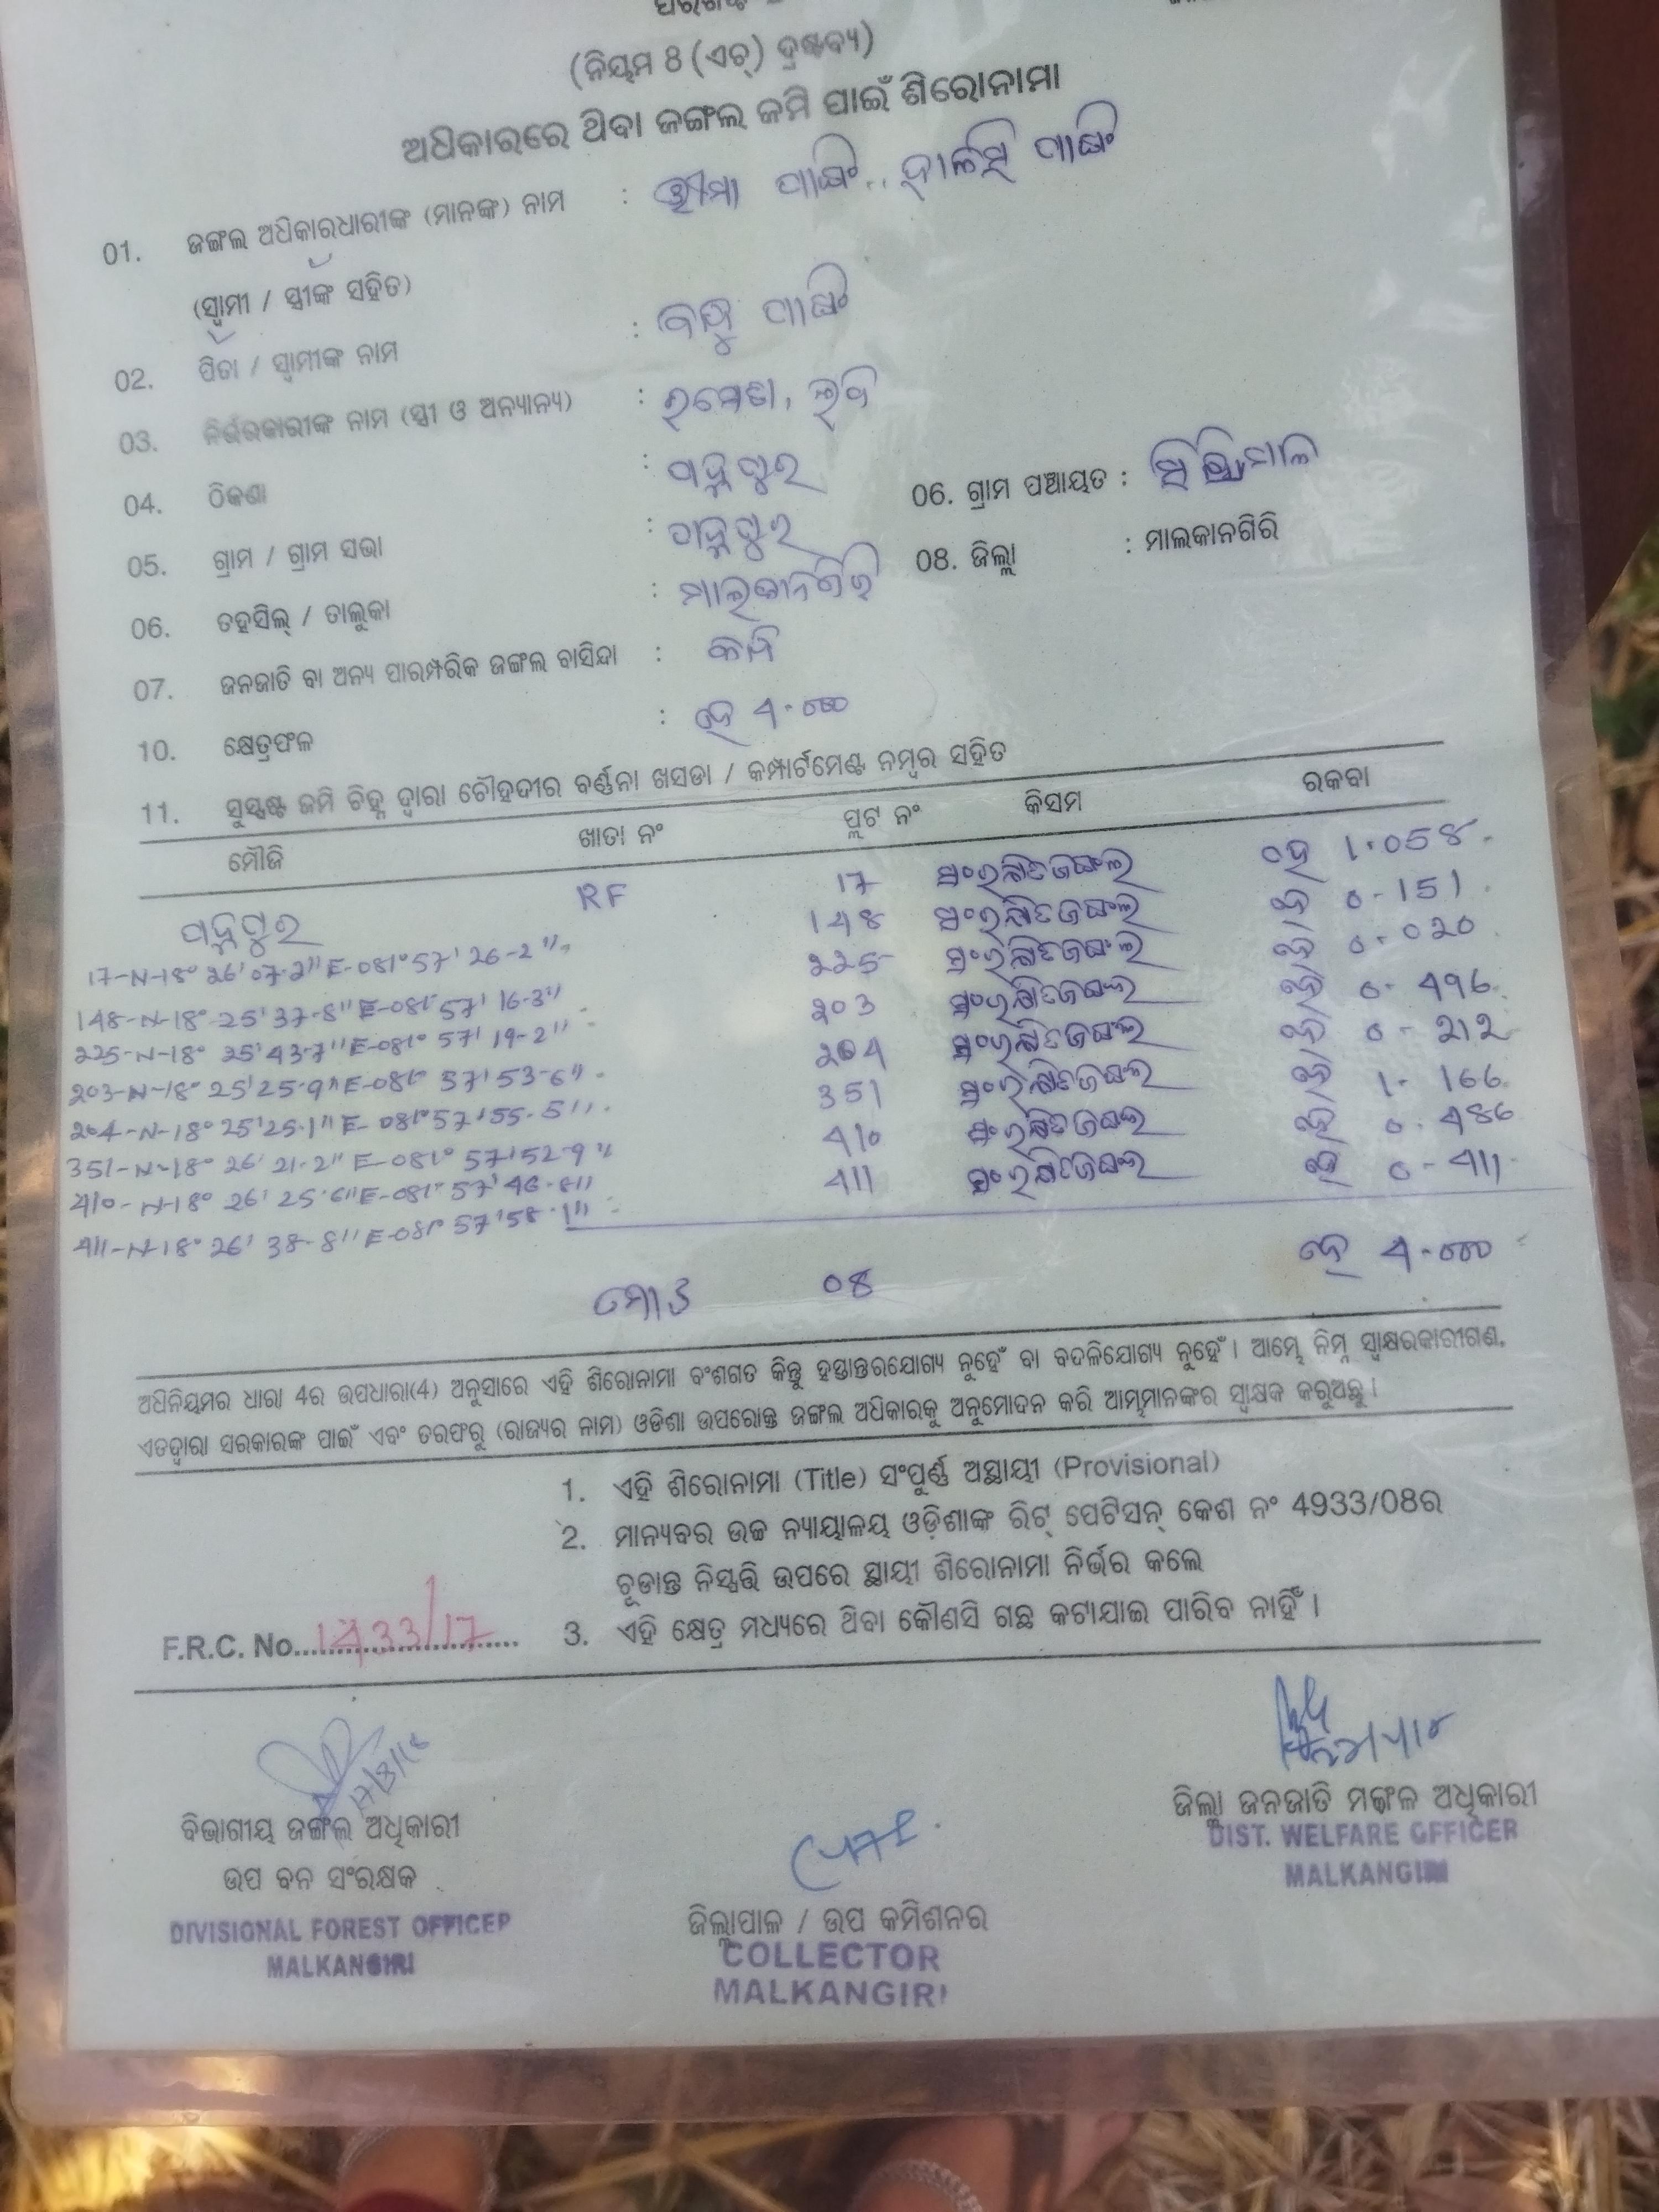 (ନିୟମ 8 (ଏଚ୍) ଦ୍ରଷ୍ଟବ୍ୟ)
ଅଧିକାରରେ ଥିବା ଜଙ୍ଗଲ ଜମି ପାଇଁ ଶିରୋନାମା
01. ଜଙ୍ଗଲ ଅଧିକାରଧାରୀଙ୍କ (ମାନଙ୍କ) ନାମ :
(ସ୍ୱାମୀ / ସ୍ତ୍ରୀଙ୍କ ସହିତ)
02. ପିତା / ସ୍ୱାମୀଙ୍କ ନାମ :
03. ନିର୍ଭରକାରୀଙ୍କ ନାମ (ସ୍ତ୍ରୀ ଓ ଅନ୍ୟାନ୍ୟ) :
04. ଠିକଣା :
05. ଗ୍ରାମ / ଗ୍ରାମ ସଭା : 06. ଗ୍ରାମ ପଞ୍ଚାୟତ :
06. ତହସିଲ୍ / ତାଲୁକା : ମାଲକାନଗିରି 08. ଜିଲ୍ଲା : ମାଲକାନଗିରି
07. ଜନଜାତି ବା ଅନ୍ୟ ପାରମ୍ପରିକ ଜଙ୍ଗଲ ବାସିନ୍ଦା :
10. କ୍ଷେତ୍ରଫଳ : ହେ 4.000
11. ସୁସ୍ପଷ୍ଟ ଜମି ଚିହ୍ନ ଦ୍ୱାରା ଚୌହଦୀର ବର୍ଣ୍ଣନା ଖସଡା / କମ୍ପାର୍ଟମେଣ୍ଟ ନମ୍ବର ସହିତ
ମୌଜି ଖାତା ନଂ ପ୍ଲଟ ନଂ କିସମ ରକବା
RF 17 ସଂରକ୍ଷିତ ଜଙ୍ଗଲ ହେ 1.058
17-N-18° 26' 07-2" E-081° 57' 26-2" 148 ସଂରକ୍ଷିତ ଜଙ୍ଗଲ ହେ 0-151
148-N-18° 25' 37-8" E-081° 57' 16-3" 225 ସଂରକ୍ଷିତ ଜଙ୍ଗଲ ହେ 0.020
225-N-18° 25' 43-7" E-081° 57' 19-2" 203 ସଂରକ୍ଷିତ ଜଙ୍ଗଲ ହେ 0-496
203-N-18° 25' 25-9" E-081° 57' 53-6" 204 ସଂରକ୍ଷିତ ଜଙ୍ଗଲ ହେ 0-212
204-N-18° 25' 25-1" E-081° 57' 55-5" 351 ସଂରକ୍ଷିତ ଜଙ୍ଗଲ ହେ 1-166
351-N-18° 26' 21-2" E-081° 57' 52-9" 410 ସଂରକ୍ଷିତ ଜଙ୍ଗଲ ହେ 0.486
410-N-18° 26' 25-6" E-081° 57' 46-8" 411 ସଂରକ୍ଷିତ ଜଙ୍ଗଲ ହେ 0-411
411-N-18° 26' 38-8" E-081° 57' 58-1"
ମୋଟ 08 ହେ 4-000
ଅଧିନିୟମର ଧାରା 4ର ଉପଧାରା(4) ଅନୁସାରେ ଏହି ଶିରୋନାମା ବଂଶଗତ କିନ୍ତୁ ହସ୍ତାନ୍ତରଯୋଗ୍ୟ ନୁହେଁ ବା ବଦଳିଯୋଗ୍ୟ ନୁହେଁ। ଆମ୍ଭେ ନିମ୍ନ ସ୍ୱାକ୍ଷରକାରୀଗଣ,
ଏତଦ୍ୱାରା ସରକାରଙ୍କ ପାଇଁ ଏବଂ ତରଫରୁ (ରାଜ୍ୟର ନାମ) ଓଡିଶା ଉପରୋକ୍ତ ଜଙ୍ଗଲ ଅଧିକାରକୁ ଅନୁମୋଦନ କରି ଆମ୍ଭମାନଙ୍କର ସ୍ୱାକ୍ଷକ କରୁଅଛୁ।
1. ଏହି ଶିରୋନାମା (Title) ସଂପୁର୍ଣ୍ଣ ଅସ୍ଥାୟୀ (Provisional)
2. ମାନ୍ୟବର ଉଚ୍ଚ ନ୍ୟାୟାଳୟ ଓଡ଼ିଶାଙ୍କ ରିଟ୍ ପେଟିସନ୍ କେଶ ନଂ 4933/08ର
ଚୂଡାନ୍ତ ନିସ୍ପତ୍ତି ଉପରେ ସ୍ଥାୟୀ ଶିରୋନାମା ନିର୍ଭର କଲେ
3. ଏହି କ୍ଷେତ୍ର ମଧ୍ୟରେ ଥିବା କୌଣସି ଗଛ କଟାଯାଇ ପାରିବ ନାହିଁ।
F.R.C. No. 1433/17
ଜିଲ୍ଲା ଜନଜାତି ମଙ୍ଗଳ ଅଧିକାରୀ
DIST. WELFARE OFFICER
MALKANGIRI
ବିଭାଗୀୟ ଜଙ୍ଗଲ ଅଧିକାରୀ
ଉପ ବନ ସଂରକ୍ଷକ
DIVISIONAL FOREST OFFICER
MALKANGIRI
ଜିଲ୍ଲାପାଳ / ଉପ କମିଶନର
COLLECTOR
MALKANGIRI